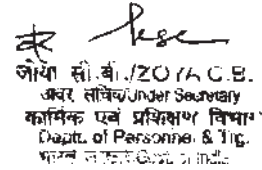 जोया सी.बी./ZOYA C.B.
अवर सचिव/Under Secretary
कार्मिक एवं प्रशिक्षण विभाग
Deptt. of Personnel & Trg.
भारत सरकार/Govt. of India